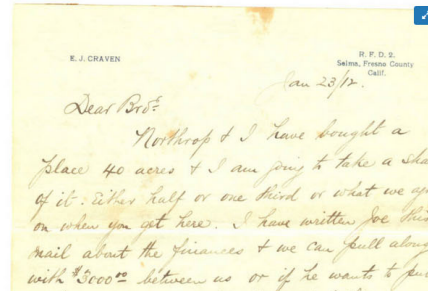 E. J. CRAVEN
R. F. D. 2.
Selma, Fresno County
Calif.
Jan 23/12.
Dear Bro:
Northrop & I have bought a
place 40 acres & I am going to take a sha
of it: Either half or one third or what we ag
on when you get here. I have written Joe this
mail about the finances & we can pull along
with $3000 00 between us or if he wants to pu